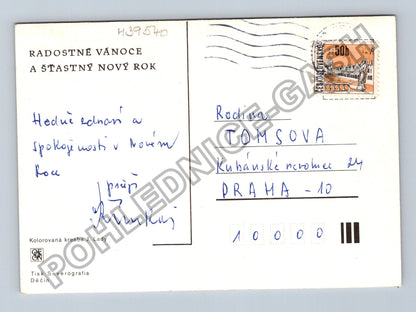 H39540
RADOSTNÉ VÁNOCE
A ŠŤASTNÝ NOVÝ ROK
50h
Hodně zdraví a
spokojenosti v Novém
Roce
přejí
Rodina
TOMSOVA
Kubánské revoluce 24
PRAHA - 10
10000
Kolorovaná kresba J. Lady
Tisk Severografia
Děčín
POHLEDNICE-GASH